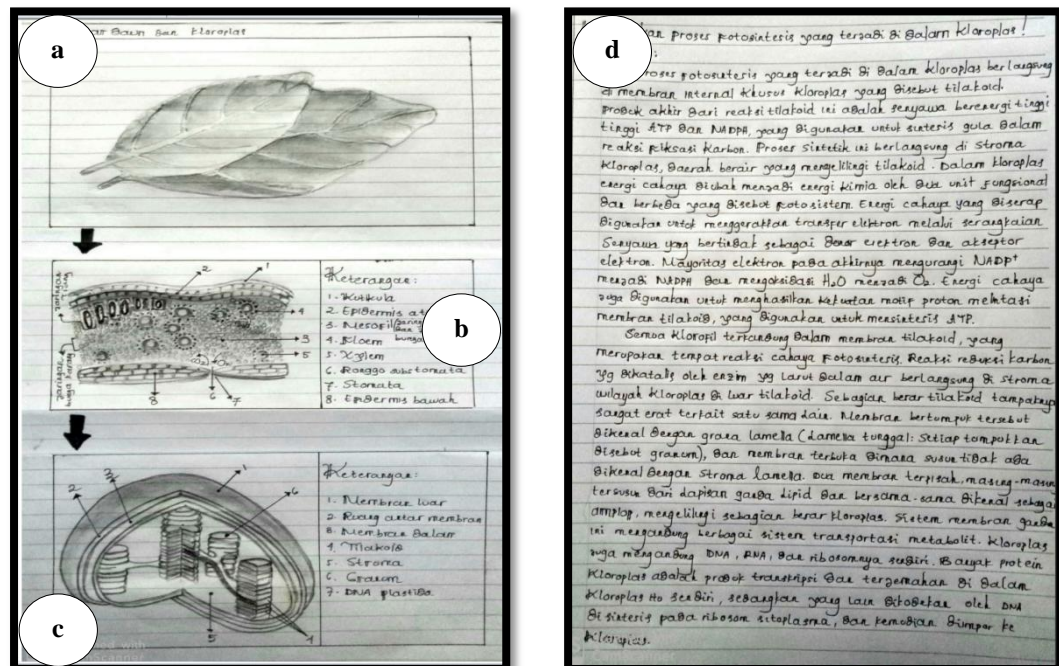 a
Daun dan Kloroplas
jaringan tiang
jaringan bunga karang
2
1
4
3
5
8
6
7
Keterangan:
1. Kutikula
2. Epidermis at
3. Mesofil
4. Floem
5. Xylem
6. Rongga substomata
7. Stomata
8. Epidermis bawah
b
2
3
1
6
5
4
Keterangan:
1. Membran luar
2. Ruang antar membran
3. Membran dalam
4. Tilakoid
5. Stroma
6. Granum
7. DNA plastida
c
d
kan proses fotosintesis yang terjadi di dalam kloroplas!
:
roses fotosintesis yang terjadi di dalam kloroplas berlangsung
di membran internal khusus kloroplas yang disebut tilakoid.
Produk akhir dari reaksi tilakoid ini adalah senyawa berenergi tinggi
tinggi ATP dan NADPH, yang digunakan untuk sintesis gula dalam
reaksi fiksasi karbon. Proses sintetik ini berlangsung di stroma
kloroplas, daerah berair yang mengelilingi tilakoid. Dalam kloroplas
energi cahaya diubah menjadi energi kimia oleh dua unit fungsional
dan berbeda yang disebut fotosistem. Energi cahaya yang diserap
digunakan untuk menggerakkan transfer elektron melalui serangkaian
Senyawa yang bertindak sebagai donor elektron dan akseptor
elektron. Mayoritas elektron pada akhirnya mengurangi NADP⁺
menjadi NADPH dan mengoksidasi H₂O menjadi O₂. Energi cahaya
juga digunakan untuk menghasilkan kekuatan motip proton melintasi
membran tilakoid, yang digunakan untuk mensintesis ATP.
Semua klorofil terkandung dalam membran tilakoid, yang
merupakan tempat reaksi cahaya fotosintesis. Reaksi reduksi karbon
yg dikatalis oleh enzim yg larut dalam air berlangsung di stroma
wilayah kloroplas di luar tilakoid. Sebagian besar tilakoid tampaknya
sangat erat terkait satu sama lain. Membran bertumpuk tersebut
dikenal dengan grana lamella (lamella tunggal: setiap tumpukkan
disebut granum), dan membran terbuka dimana susun tidak ada
dikenal dengan stroma lamella. dua membran terpisah, masing-masing
tersusun dari lapisan ganda lipid dan bersama-sama dikenal sebagai
amplop, mengelilingi sebagian besar kloroplas. Sistem membran ganda
ini mengandung berbagai sistem transportasi metabolit. Kloroplas
juga mengandung DNA, RNA, dan ribosomnya sendiri. Banyak protein
kloroplas adalah produk transkripsi dan terjemahan di dalam
kloroplas itu sendiri, sedangkan yang lain dikodekan oleh DNA
di sintesis pada ribosom sitoplasma, dan kemudian diimpor ke
kloroplas.